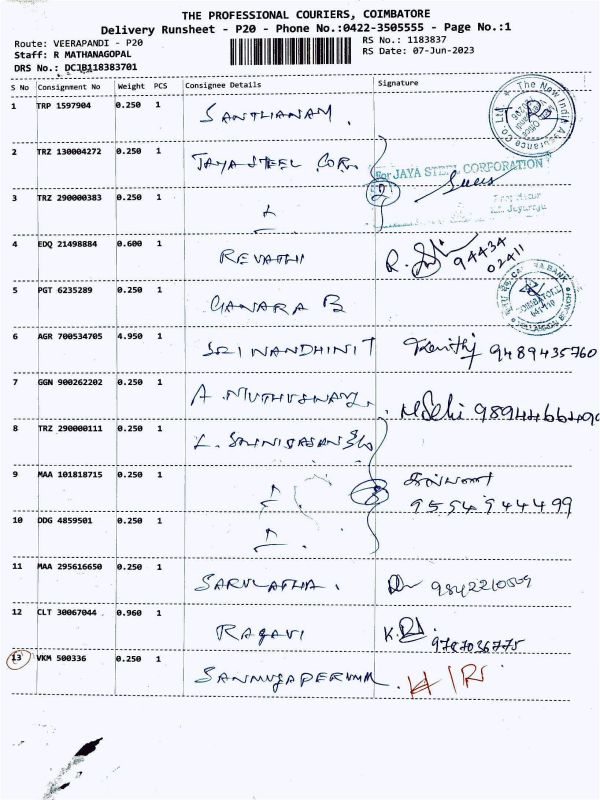 THE PROFESSIONAL COURIERS, COIMBATORE
Delivery Runsheet - P20 - Phone No.:0422-3505555 - Page No.:1
Route: VEERAPANDI - P20
RS No.: 1183837
Staff: R MATHANAGOPAL
RS Date: 07-Jun-2023
DRS No.: DCJB118383701
S No Consignment No Weight PCS Consignee Details Signature
1 TRP 1597904 0.250 1 SANTHANAM.
The New India Assurance Co Ltd
2 TRZ 130004272 0.250 1 JAYA STEEL COR.
For JAYA STEEL CORPORATION
3 TRZ 290000383 0.250 1
4 EDQ 21498884 0.600 1 REVATHI R. 94434
02411
5 PGT 6235289 0.250 1 CANARA B
CANARA BANK
COIMBATORE
6 AGR 700534705 4.950 1 SRI NANDHINI T 9489435760
7 GGN 900262202 0.250 1 A. MUTHUSWAMY.
8 TRZ 290000111 0.250 1 L.
9 MAA 101818715 0.250 1
10 DDG 4859501 0.250 1
11 MAA 295616650 0.250 1 SARULATHA.
12 CLT 30067044 0.960 1 RAGAVI K.
9787036775
13 VKM 500336 0.250 1